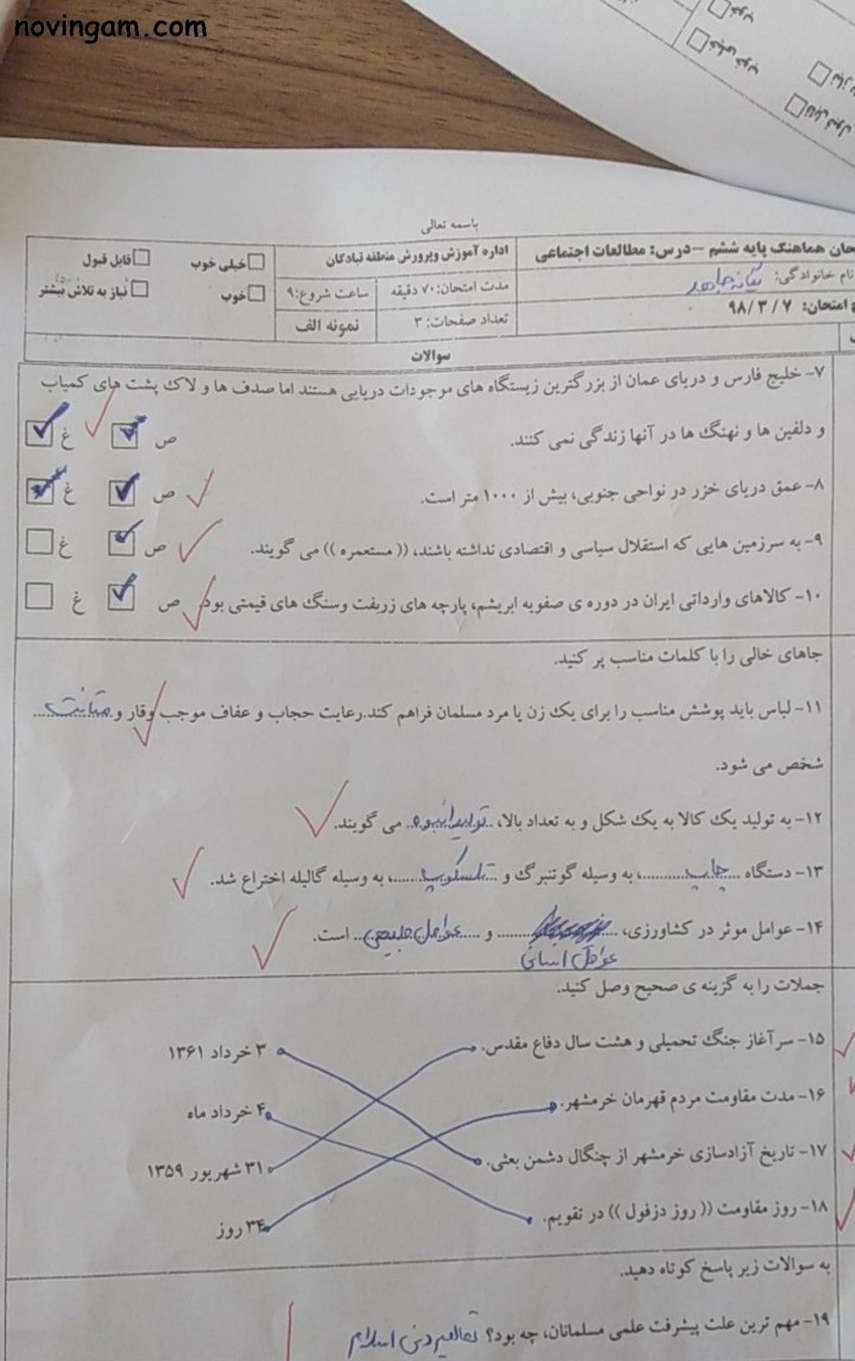 novingam.com
خوب
خیلی خوب
قابل قبول
باسمه تعالی
حان هماهنگ پایه ششم –درس: مطالعات اجتماعی
اداره آموزش وپرورش منطقه تبادکان
خیلی خوب
قابل قبول
نام خانوادگی:
مدت امتحان: ۷۰ دقیقه
ساعت شروع:۹
خوب
نیاز به تلاش بیشتر
امتحان: ۷ / ۳ / ۹۸
تعداد صفحات: ۳
نمونه الف
سوالات
۷- خلیج فارس و دریای عمان از بزرگترین زیستگاه های موجودات دریایی هستند اما صدف ها و لاک پشت های کمیاب
و دلفین ها و نهنگ ها در آنها زندگی نمی کنند. ص غ
۸- عمق دریای خزر در نواحی جنوبی، بیش از ۱۰۰۰ متر است. ص غ
۹- به سرزمین هایی که استقلال سیاسی و اقتصادی نداشته باشند، (( مستعمره )) می گویند. ص غ
۱۰- کالاهای وارداتی ایران در دوره ی صفویه ابریشم، پارچه های زربفت وسنگ های قیمتی بود. ص غ
جاهای خالی را با کلمات مناسب پر کنید.
۱۱- لباس باید پوشش مناسب را برای یک زن یا مرد مسلمان فراهم کند.رعایت حجاب و عفاف موجب وقار و متانت
شخص می شود.
۱۲- به تولید یک کالا به یک شکل و به تعداد بالا، تولید انبوه می گویند.
۱۳- دستگاه چاپ، به وسیله گوتنبرگ و تلسکوپ، به وسیله گالیله اختراع شد.
۱۴- عوامل موثر در کشاورزی، و عوامل طبیعی است.
عوامل انسانی
جملات را به گزینه ی صحیح وصل کنید.
۱۵- سرآغاز جنگ تحمیلی و هشت سال دفاع مقدس. ۳ خرداد ۱۳۶۱
۱۶- مدت مقاومت مردم قهرمان خرمشهر. ۴ خرداد ماه
۱۷- تاریخ آزادسازی خرمشهر از چنگال دشمن بعثی. ۳۱ شهریور ۱۳۵۹
۱۸- روز مقاومت (( روز دزفول )) در تقویم. ۳۴ روز
به سوالات زیر پاسخ کوتاه دهید.
۱۹- مهم ترین علت پیشرفت علمی مسلمانان، چه بود؟ تعالیم دین اسلام